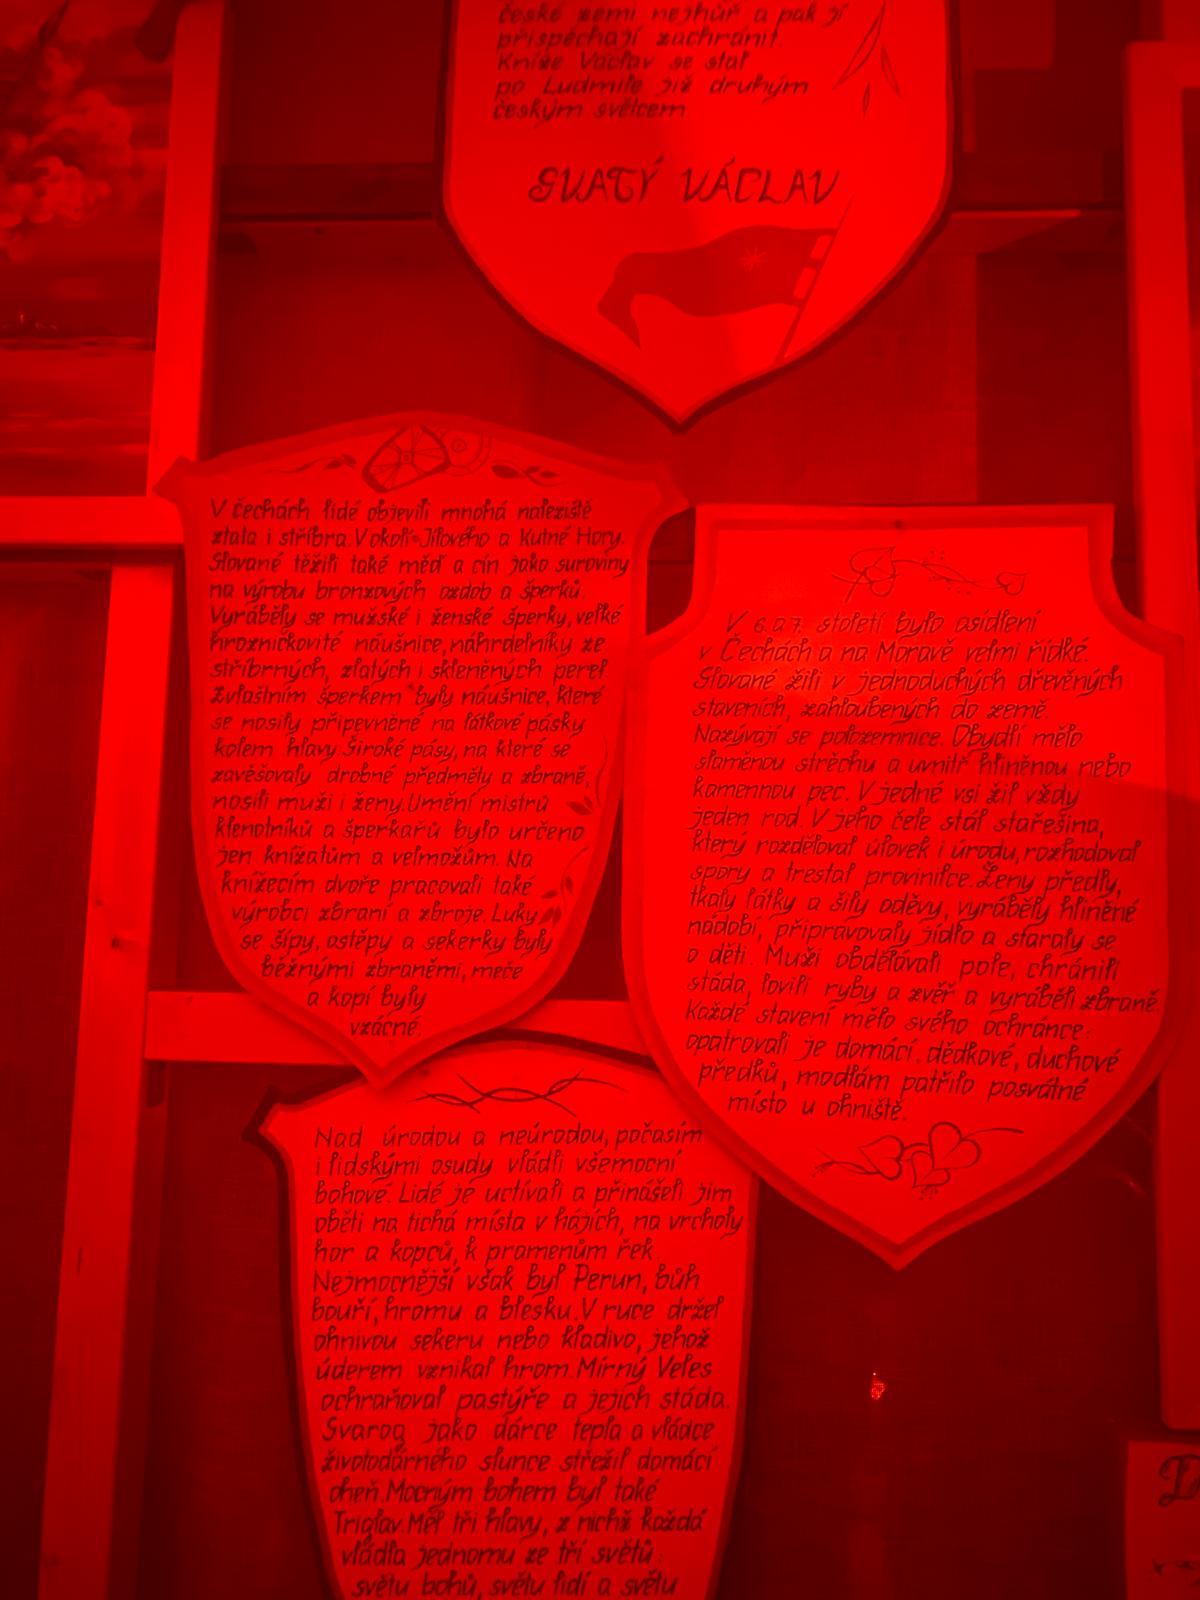 české zemi nejhůř a pak jí
přispěchají zachránit.
Kníže Václav se stal
po Ludmile již druhým
českým světcem
SVATÝ VÁCLAV
V Čechách lidé objevili mnohá naleziště
zlata i stříbra. V okolí Jílového a Kutné Hory.
Slované těžili také měď a cín jako suroviny
na výrobu bronzových ozdob a šperků.
Vyráběly se mužské i ženské šperky, velké
hrozníčkovité náušnice, náhrdelníky ze
stříbrných, zlatých i skleněných perel.
Zvláštním šperkem byly náušnice, které
se nosily připevněné na látkové pásky
kolem hlavy. Široké pásy, na které se
zavěšovaly drobné předměty a zbraně,
nosili muži i ženy. Umění mistrů
klenotníků a šperkařů bylo určeno
jen knížatům a velmožům. Na
knížecím dvoře pracovali také
výrobci zbraní a zbroje. Luky
se šípy, oštěpy a sekerky byly
běžnými zbraněmi, meče
a kopí byly
vzácné.
V 6. a 7. století bylo osídlení
v Čechách a na Moravě velmi řídké.
Slované žili v jednoduchých dřevěných
staveních, zahloubených do země.
Nazývají se polozemnice. Obydlí mělo
slaměnou střechu a uvnitř hliněnou nebo
kamennou pec. V jedné vsi žil vždy
jeden rod. V jeho čele stál stařešina,
který rozděloval úlovek i úrodu, rozhodoval
spory a trestal provinilce. Ženy předly,
tkaly látky a šily oděvy, vyráběly hliněné
nádobí, připravovaly jídlo a staraly se
o děti. Muži obdělávali pole, chránili
stáda, lovili ryby a zvěř a vyráběli zbraně.
Každé stavení mělo svého ochránce:
opatrovali je domácí dědkové, duchové
předků, modlám patřilo posvátné
místo u ohniště.
Nad úrodou a neúrodou, počasím
i lidskými osudy vládli všemocní
bohové. Lidé je uctívali a přinášeli jim
oběti na tichá místa v hájích, na vrcholy
hor a kopců, k pramenům řek.
Nejmocnější však byl Perun, bůh
bouří, hromu a blesku. V ruce držel
ohnivou sekeru nebo kladivo, jehož
úderem vznikal hrom. Mírný Veles
ochraňoval pastýře a jejich stáda.
Svarog jako dárce tepla a vládce
životodárného slunce střežil domácí
oheň. Mocným bohem byl také
Triglav. Měl tři hlavy, z nichž každá
vládla jednomu ze tří světů:
světu bohů, světu lidí a světu